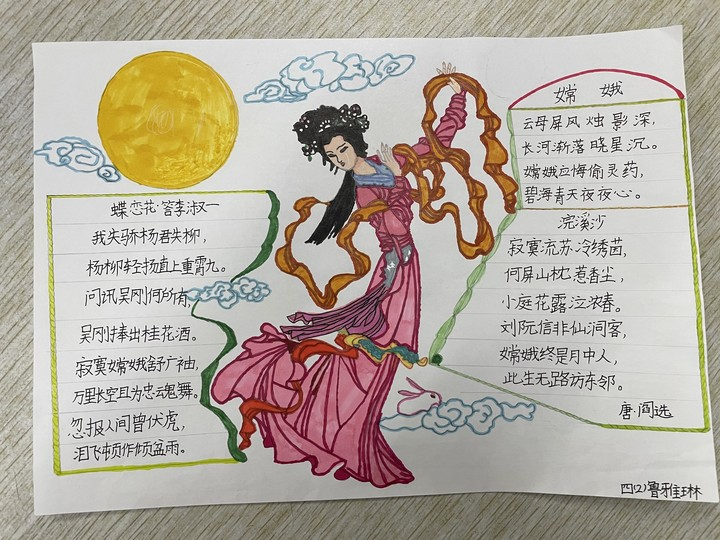 蝶恋花·答李淑一
我失骄杨君失柳,
杨柳轻扬直上重霄九。
问讯吴刚何所有,
吴刚捧出桂花酒。
寂寞嫦娥舒广袖,
万里长空且为忠魂舞。
忽报人间曾伏虎,
泪飞顿作倾盆雨。
嫦 娥
云母屏风烛影深,
长河渐落晓星沉。
嫦娥应悔偷灵药,
碧海青天夜夜心。
浣溪沙
寂寞流苏冷绣茵,
何屏山枕惹香尘,
小庭花露泣浓春。
刘阮信非仙洞客,
嫦娥终是月中人,
此生无路访东邻。
唐·阎选
四(2)鲁雅琳